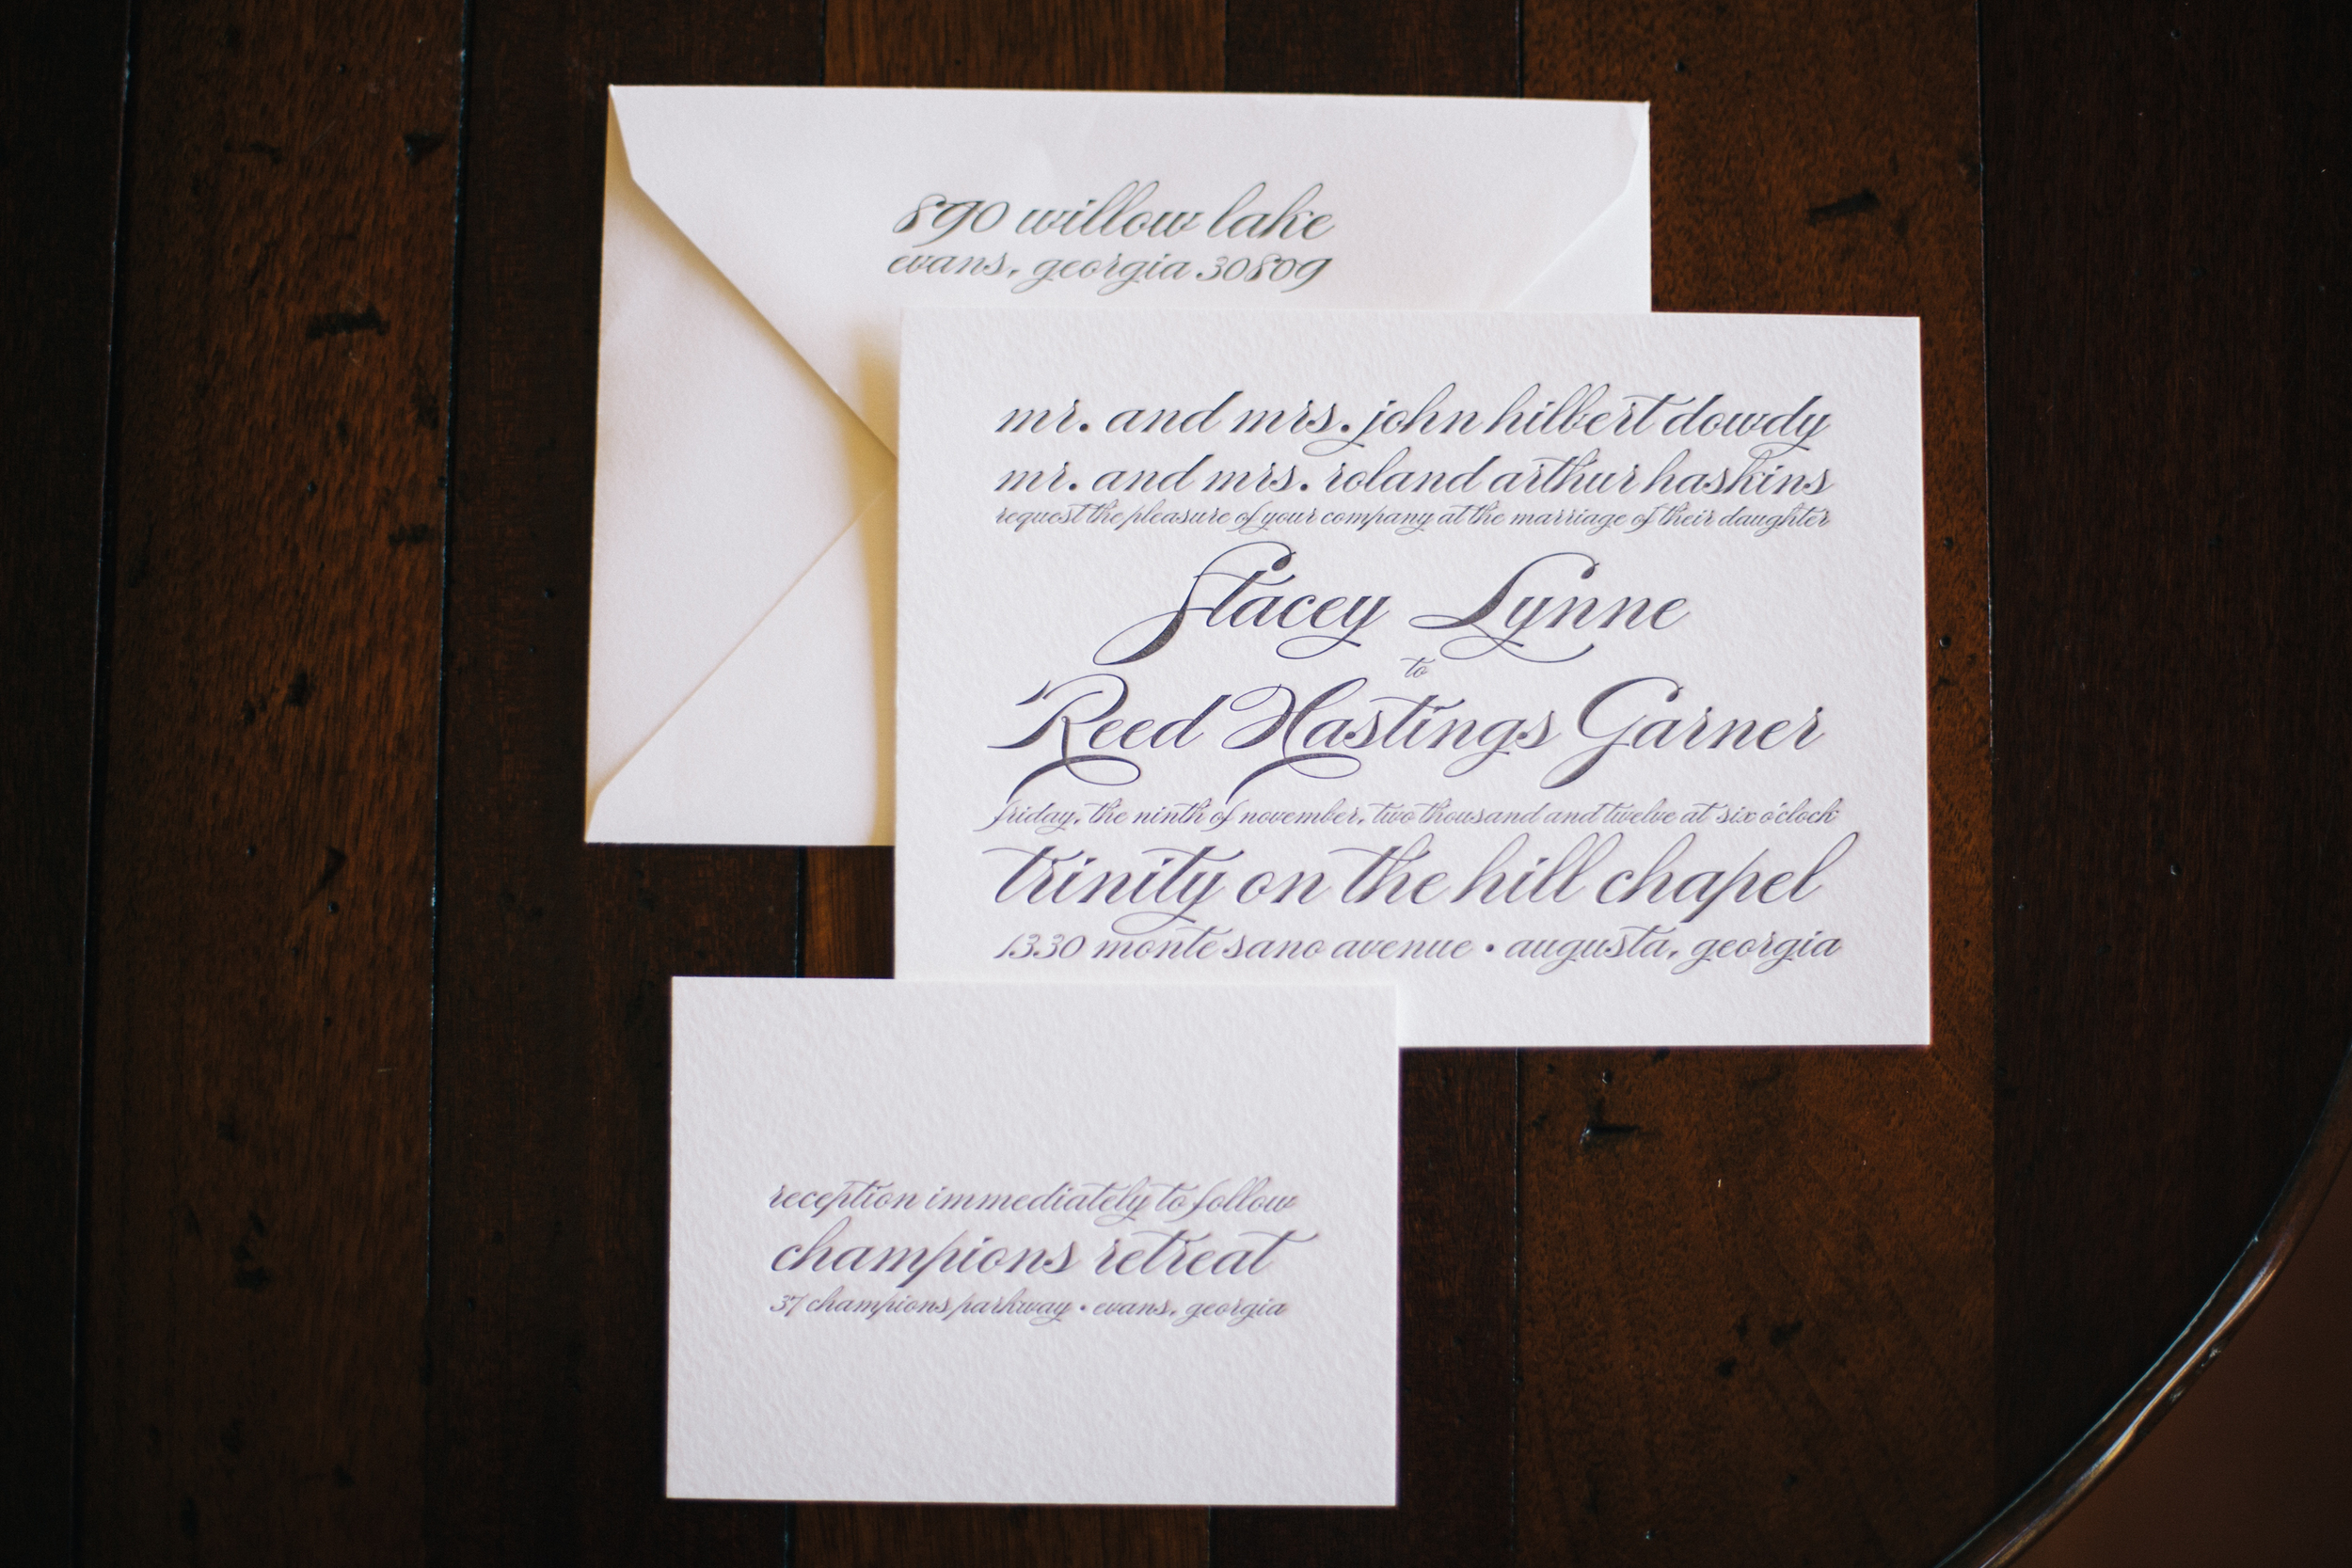 890 willow lake
evans, georgia 30809
mr. and mrs. john hilbert dowdy
mr. and mrs. roland arthur haskins
request the pleasure of your company at the marriage of their daughter
Stacey Lynne
to
Reed Hastings Garner
friday, the ninth of november, two thousand and twelve at six o'clock
trinity on the hill chapel
1330 monte sano avenue • augusta, georgia
reception immediately to follow
champions retreat
37 champions parkway • evans, georgia